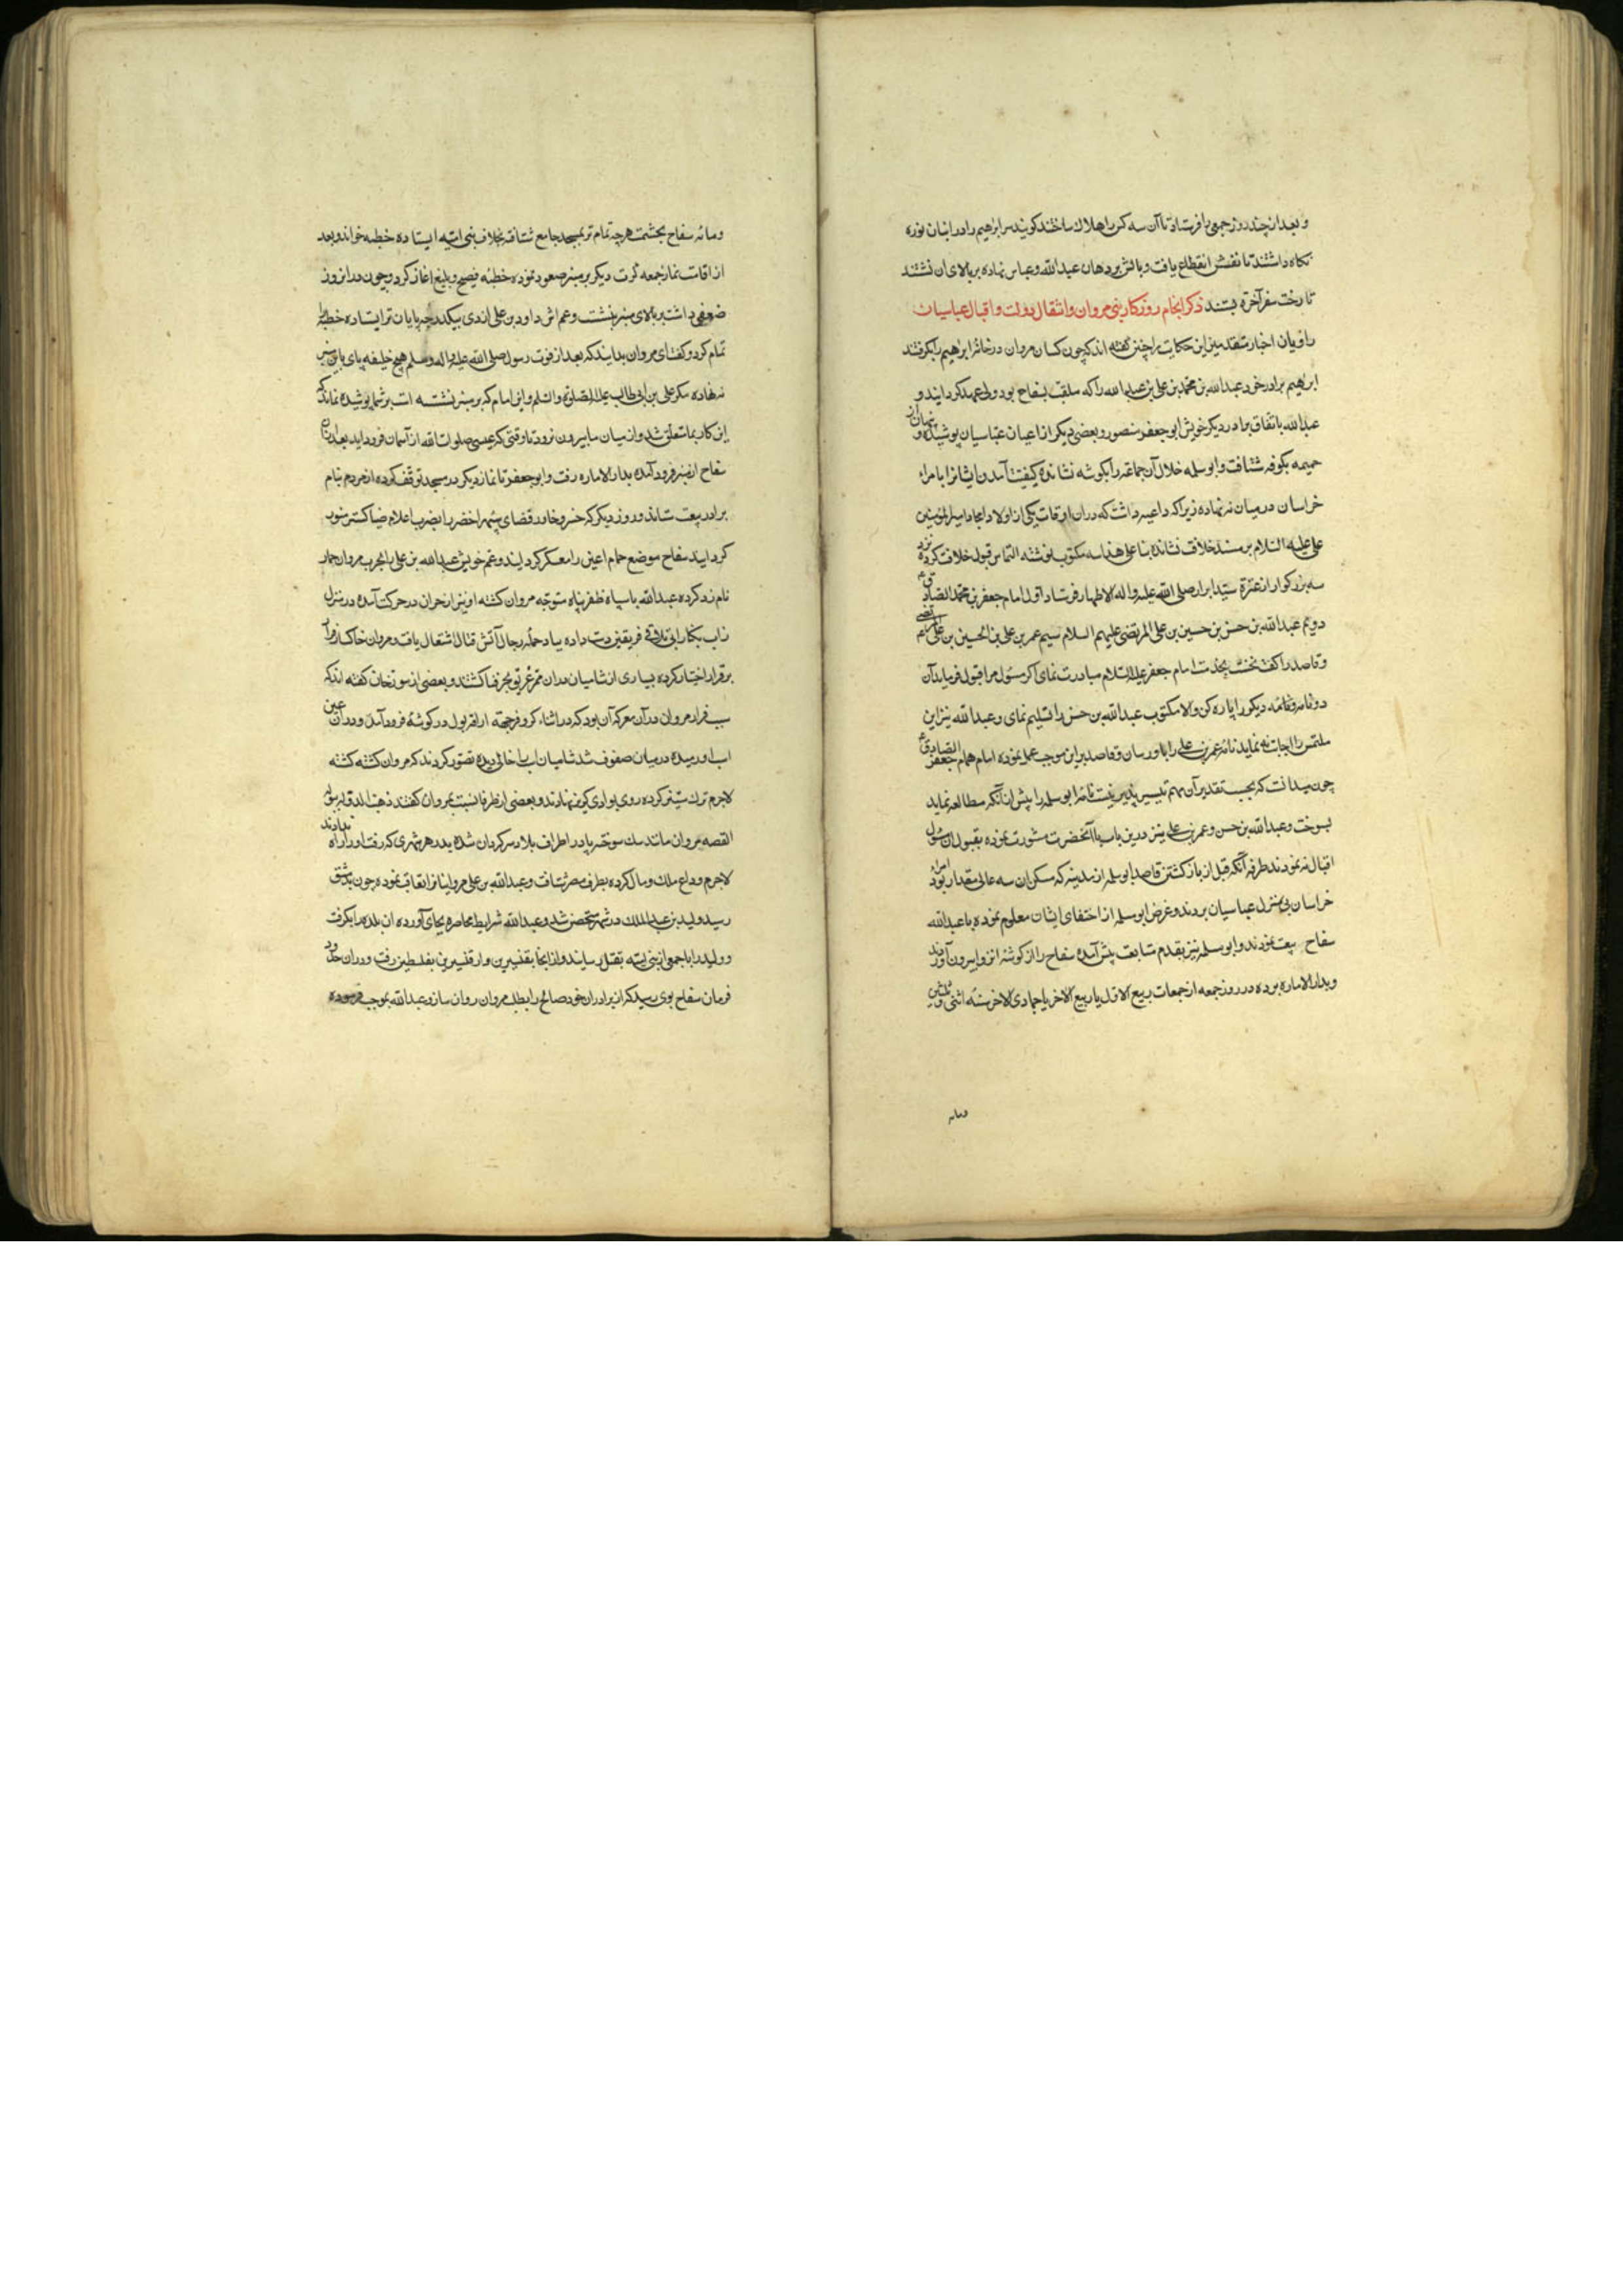 و بعد از چند روز جمعی را فرستاد تا آن سه کس را هلاک ساختند کویند سر ابرهیم را در انبان نوره
نکاه داشتند تا نفسش انقطاع یافت و بالش بر دهان عبد الله و عباس نهاده بر بالای ان نشتند
تا رخت سفر آخرة بستند ذکر انجام روزکار بنی مروان و انتقال دولت و اقبال عباسیان
راویان اخبار متقدمین این حکایت را چنین کفته اند که چون کسان مروان در خانه ابرهیم را بکرفتند
ابرهیم برادر خود عبد الله بن محمد بن علی بن عبد الله را که ملقب بسفاح بود ولی عهد کردانید و
عبد الله باتفاق برادر دیکر خویش ابو جعفر منصور و بعضی دیکر از اعیان عباسیان پوشیده و پنهان از
حمیمه بکوفه شتافت و ابو سلمه خلال آن جماعة را بکوشه نشانده کیفیت آمدن ایشانرا با مراء
خراسان در میان ننهاده زیرا که داعیه داشت که در ان اوقات یکی از اولاد امجاد امیر المؤمنین
علی علیه السلام بر مسند خلافت نشاند بنا علی هذا سه مکتوب نوشته التماس قبول خلافت کرده نزد
سه بزرکوار از عترة سید ابرار صلی الله علیه و اله الاطهار فرستاد اول امام جعفر بن محمد الصادق ع
دویم عبد الله بن حسن بن حسین بن علی المرتضی علیهم السلام سیم عمر بن علی بن الحسین بن علی المرتضی ع
و قاصد را کفت نخست بخدمت امام جعفر علیه السلام مبادرت نمای اکر مسئول مرا قبول فرماید آن
دو نامه دیکر را پاره کن و الا مکتوب عبد الله بن حسن را تسلیم نمای و عبد الله نیز این
ملتمس را اجابت نه نماید نامه عمر بن علی را باو رسان و قاصد برین موجب عمل نموده امام همام جعفر الصادق ع
چون میدانت که بحسب تقدیر آن مهم تیسیر پذیر نیست نامه ابو سلمه را پیش از آنکه مطالعه نماید
بسوخت و عبد الله بن حسن و عمر بن علی نیز درین باب با آنحضرت مشورت نموده بقبول ان مسئول
اقبال نه نمودند طرفه آنکه قبل از باز کشتن قاصد ابو سلمه از مدینه که مسکن ان سه عالی مقدار بود امراء
خراسان پی بمنزل عباسیان بردند و غرض ابو سلمه از اختفای ایشان معلوم نموده با عبد الله
سفاح بیعت نمودند و ابو سلمه نیز بقدم متابعت پیش آمده سفاح را از کوشه انزوا بیرون آوردند
و بدار الاماره برده در روز جمعه از جمعات ربیع الاول یا ربیع الاخر یا جمادی الاخر سنه اثنی و ثلثین
ومائه
ومائه سفاح بحشمت هر چه تمام تر بمسجد جامع شتافته بخلاف بنی امیه ایستاده خطبه خواند و بعد
از اقامت نماز جمعه کرت دیکر بر منبر صعود نموده خطبه فصیح و بلیغ اغاز کرد و چون در انروز
ضعفی داشت بر بالای منبر بنشست و عم اش داود بن علی ازدی بیکدرجه پایان تر ایستاده خطبه را
تمام کرد و کفت ای مروان بدانید که بعد از فوت رسول صلی الله علیه و اله و سلم هیچ خلیفه پای باین منبر
نهاده مکر علی بن ابی طالب علیه الصلوة و السلم و این امام که بر منبر نشسته است بر شما پوشیده نماند که
این کار بما متعلق شد و از میان ما بیرون نرود تا وقتی که عیسی صلوات الله از آسمان فرود اید بعد از ان
سفاح از منبر فرود آمده بدار الاماره رفت و ابو جعفر تا نماز دیکر در مسجد توقف کرده از مردم بنام
برادر بیعت ستاند و روز دیکر که خسرو خاور قضای سپهر اخضر را بضرب اعلام ضیا کستر منور
کردانید سفاح موضع حمام اعین را معسکر کردانید و عم خویش عبد الله بن علی را بحرب مروان حمار
نام زد کرده عبد الله با سپاه ظفر پناه متوجه مروان کشته او نیز از حران در حرکت آمده در منزل
زاب بکنار ابی تلاقی فریقین دست داده بیاد حمله رجال آتش قتال اشتعال یافت و مروان خاکسار فرار
برقرار اختیار کرده بسیاری از شامیان دران غریق بحر فنا کشتند و بعضی از مورخان کفته اند که
سبب فرار مروان در آن معرکه آن بود که در اثناء کر و فر جهة اراقه بول در کوشه فرود آمد و در آن عین
اسب او رمیده در میان صفوف شد شامیان اسب را خالی دیده تصور کردند که مروان کشته کشته
لاجرم ترک ستیز کرده روی بوادی کریز نهادند و بعضی از ظرفا نسبت بمروان کفتند ذهب الدولة ببولة
القصه مروان مانند سک سوخته پا در اطراف بلاد سرکردان شده بدر هر شهری که رفت او را راه ندادند
لاجرم وداع ملک و مال کرده بطرف مصر شتافت و عبد الله بن علی مروانیانرا تعاقب نموده چون بدمشق
رسید ولید بن عبد الملک در شهر متحصن شد و عبد الله شرایط محاصره بجای آورده ان بلده را بکرفت
و ولید را با جمعی از بنی امیه بقتل رسانید و از انجا بقنسرین و از قنسرین بفلسطین رفت و در ان حدود
فرمان سفاح بوی رسید که از برادران خود صالح را بطلب مروان روان سازد عبد الله بموجب فرموده